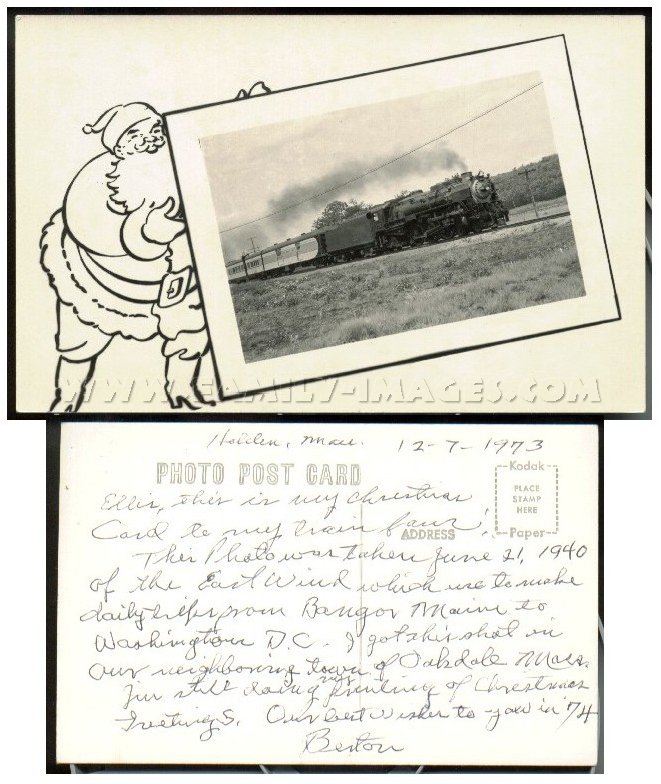 WWW.FAMILY-IMAGES.COM
Holden, Mass. 12-7-1973
PHOTO POST CARD
Kodak
PLACE
STAMP
HERE
Paper
ADDRESS
Ellis, this is my Christmas
Card to my train fans!
This Photo was taken June 21, 1940
of the East Wind which use to make
daily trips from Bangor Maine to
Washington D.C. I got this shot in
our neighboring town of Oakdale Mass.
I'm still doing my printing of Christmas
Greetings. Our best Wishes to you in '74